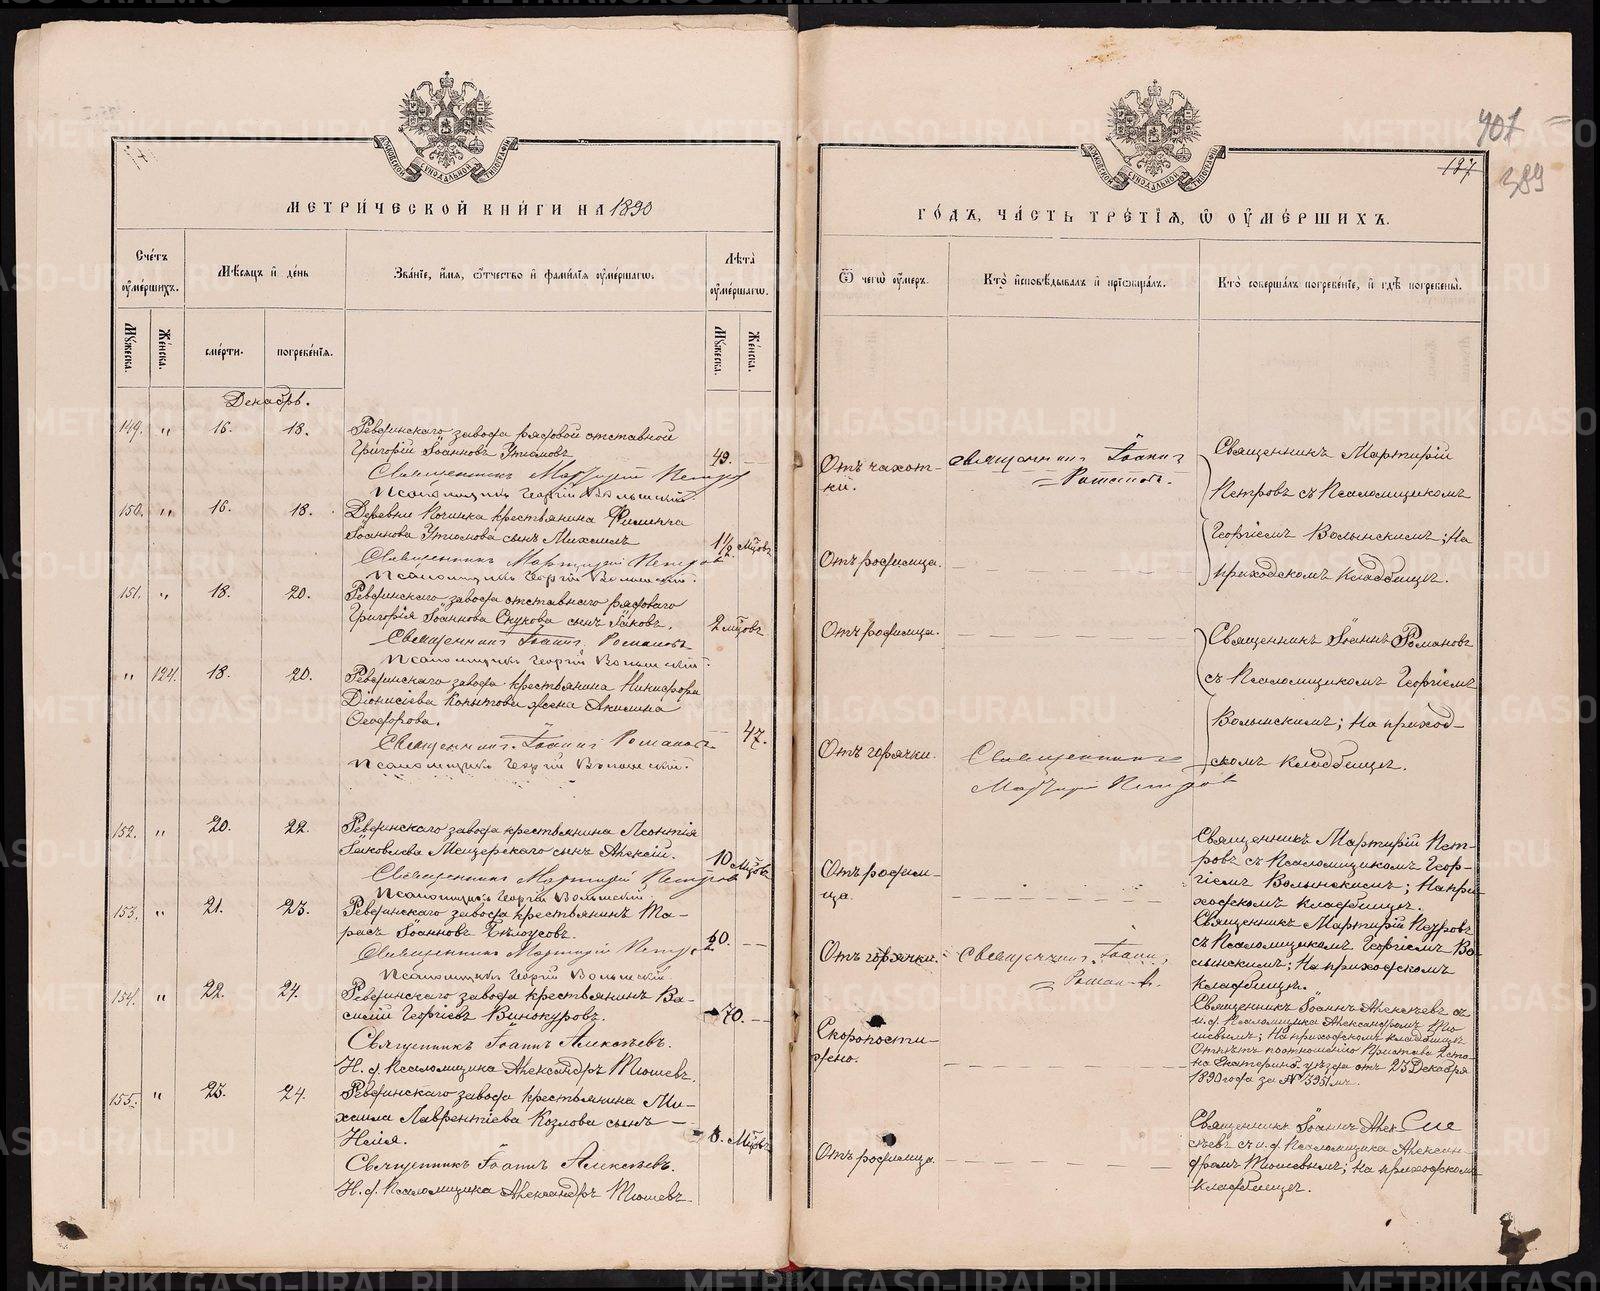 МЕТРИ́ЧЕСКОЙ КНИ́ГИ НА 1890
Сче́тъ оумершихъ.
Мѣсяцъ и де́нь
Зва́нїе, и́мя, ѻтчество и фами́лїя оуме́ршагѡ.
Лѣта̀ оуме́ршагѡ.
Мꙋжеска.
Же́нска.
сме́рти.
погребе́нїя.
Мꙋжеска.
Же́нска.
Декабрь.
149. " 16. 18. Ревдинскаго завода рядовой отставной
Григорій Іоанновъ Утюмовъ 49.
Священникъ Мартирій Петров
Псаломщикъ Георгій Волынскій.
150. " 16. 18. Деревни Починка крестьянина Филиппа
Іоаннова Утюмова сынъ Михаилъ 1½ мцовъ
Священникъ Мартирій Петров
Псаломщикъ Георгій Волынскій.
151. " 18. 20. Ревдинскаго завода отставнаго рядоваго
Григорія Іоаннова сынъ Іаковъ. 2 мцовъ
Священникъ Іоаннъ Романовъ
Псаломщикъ Георгій Волынскій.
" 124. 18. 20. Ревдинскаго завода крестьянина Никифора
Діонисіева Копытова жена Акилина
Ѳеодорова. 47.
Священникъ Іоаннъ Романовъ
Псаломщикъ Георгій Волынскій.
152. " 20. 22. Ревдинскаго завода крестьянина Леонтія
Іаковлева Мещерскаго сынъ Алексій. 10 мцовъ
Священникъ Мартирій Петров
Псаломщикъ Георгій Волынскій
153. " 21. 23. Ревдинскаго завода крестьянинъ Та-
расъ Іоанновъ Бѣлоусовъ.
Священникъ Мартирій Петров
Псаломщикъ Георгій Волынскій
154. " 22. 24. Ревдинскаго завода крестьянинъ Ва-
силій Георгіевъ Винокуровъ. 70.
Священникъ Іоаннъ Алексѣевъ.
И. д. Псаломщика Александръ Тюшевъ.
155. " 23. 24. Ревдинскаго завода крестьянина Ми-
хаила Лаврентіева Козлова сынъ
Илія. Мцовъ
Священникъ Іоаннъ Алексѣевъ.
И. д. Псаломщика Александръ Тюшевъ
407
389
187
ГО́ДЪ, ЧА́СТЬ ТРЕ́ТЇЯ, Ѡ ОУМЕ́РШИХЪ.
Ѿ чегѡ̀ оу́меръ.
Кто̀ и҆сповѣ́дывалъ и҆ прїѡбща́лъ.
Кто̀ соверша́лъ погребе́нїе, и҆ гдѣ̀ погребены̀.
Отъ чахот-
ки.
священникъ Іоаннъ
Романовъ.
Священникъ Мартирій
Петровъ съ Псаломщикомъ
Георгіемъ Волынскимъ; На
приходскомъ кладбищѣ.
Отъ родимца.
Отъ родимца.
Священникъ Іоаннъ Романовъ
съ Псаломщикомъ Георгіемъ
Волынскимъ; На приход-
скомъ кладбищѣ.
Отъ горячки.
Священникъ
Мартирій Петров
Отъ родим-
ца.
Священникъ Мартирій Пет-
ровъ съ Псаломщикомъ Геор-
гіемъ Волынскимъ; На при-
ходскомъ кладбищѣ.
Отъ горячки.
Священникъ Іоаннъ
Романовъ.
Священникъ Мартирій Петровъ
съ Псаломщикомъ Георгіемъ Во-
лынскимъ; На приходскомъ
кладбищѣ.
Скоропости-
жно.
Священникъ Іоаннъ Алексѣевъ съ
и. д. Псаломщика Александромъ Тю-
шевымъ; На приходскомъ кладбищѣ.
Отпѣтъ по отношенію Пристава 2 ста-
на Екатеринб. уѣзда отъ 23 Декабря
1890 года за №
Отъ родимца.
Священникъ Іоаннъ Алек
сѣевъ съ и. д. Псаломщика Алексан-
дромъ Тюшевымъ; на приходскомъ
кладбищѣ.
METRIKI.GASO-URAL.RU